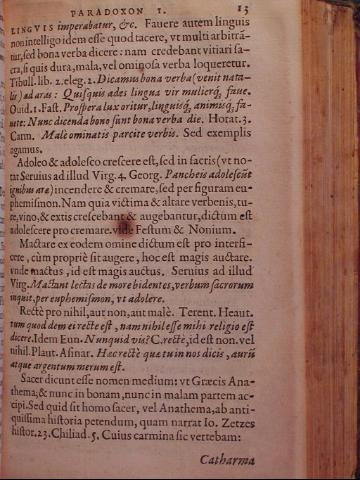 PARADOXON 1. 13
LINGVIS imperabatur, &c. Fauere autem linguis
non intelligo idem esse quod tacere, vt multi arbitrā-
tur, sed bona verba dicere: nam credebant vitiari sa-
cra, si quis dura, mala, vel ominosa verba loqueretur.
Tibull. lib. 2. eleg. 2. Dicamus bona verba (venit nata-
lis) ad aras: Quisquis ades lingua vir mulierq́, faue.
Ouid. 1. Fast. Prospera lux oritur, linguisq́, animisq́, fa-
uete: Nunc dicenda bono sunt bona verba die. Horat. 3.
Carm. Malè ominatis parcite verbis. Sed exemplis
agamus.
Adoleo & adolesco crescere est, sed in sacris (vt no-
tat Seruius ad illud Virg. 4. Georg. Pancheis adolescūt
ignibus aræ) incendere & cremare, sed per figuram eu-
phemismon. Nam quia victima & altare verbenis, tu-
re, vino, & extis crescebant & augebantur, dictum est
adolescere pro cremare. vide Festum & Nonium.
Mactare ex eodem omine dictum est pro interfi-
cere, cùm propriè sit augere, hoc est magis auctare.
vnde mactus, id est magis auctus. Seruius ad illud
Virg. Mactant lectas de more bidentes, verbum sacrorum
inquit, per euphemismon, vt adolere.
Rectè pro nihil, aut non, aut malè. Terent. Heaut.
tum quod dem ei recte est, nam nihil esse mihi religio est
dicere. Idem Eun. Nunquid vis? C. rectè, id est non. vel
nihil. Plaut. Asinar. Hæc rectè que tu in nos dicis, aurū
atque argentum merum est.
Sacer dicunt esse nomen medium: vt Græcis Ana-
thema, & nunc in bonam, nunc in malam partem ac-
cipi. Sed quid sit homo sacer, vel Anathema, ab anti-
quissima historia petendum, quam narrat Io. Zetzes
histor. 23. Chiliad. 5. Cuius carmina sic vertebam:
Catharma